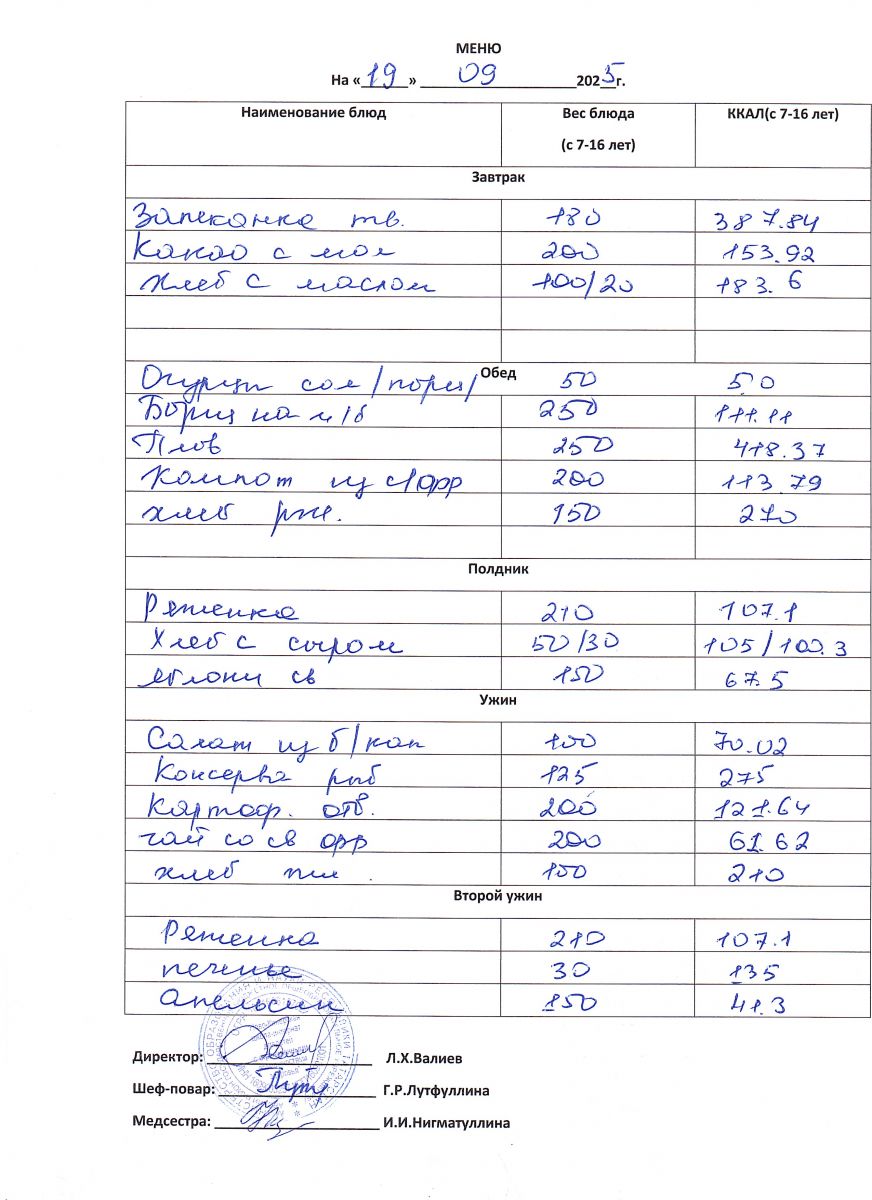 МЕНЮ
На «19» 09 2025г.
Наименование блюд Вес блюда (с 7-16 лет) ККАЛ(с 7-16 лет)
Завтрак
Запеканка тв. 180 387.84
Какао с мол 200 153.92
Хлеб с маслом 100/20 183.6
Обед
Огурцы сол /порц/ 50 5.0
Борщ на м/б 250 111.11
Плов 250 418.37
Компот из с/фр 200 113.79
хлеб рж. 150 270
Полдник
Ряженка 210 107.1
Хлеб с сыром 50/30 105/100.3
яблоки св 150 67.5
Ужин
Салат из б/кап 100 70.02
Консерва рыб 125 275
Картоф. отв. 200 121.64
чай со св фр 200 61.62
хлеб пш. 100 210
Второй ужин
Ряженка 210 107.1
печенье 30 135
Апельсин 150 41.3
Директор: Л.Х.Валиев
Шеф-повар: Г.Р.Лутфуллина
Медсестра: И.И.Нигматуллина